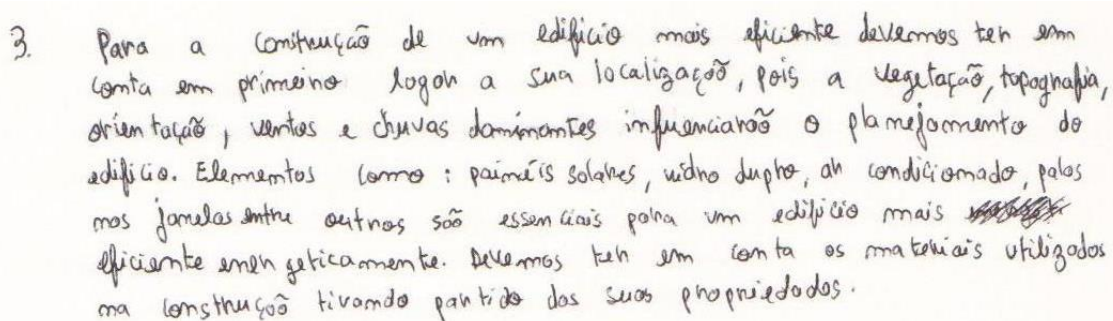 3. Para a construção de um edificio mais eficiente devemos ter em
conta em primeiro logar a sua localização, pois a vegetação, topografia,
orientação, ventos e chuvas dominantes infuenciarão o planejamento do
edificio. Elementos como: painéis solares, vidro dupro, ar condicionado, palas
nas janelas entre outros são essenciais para um edificio mais
eficiente energeticamente. Devemos ter em conta os materiais utilizados
na construção tirando partido das suas propriedades.